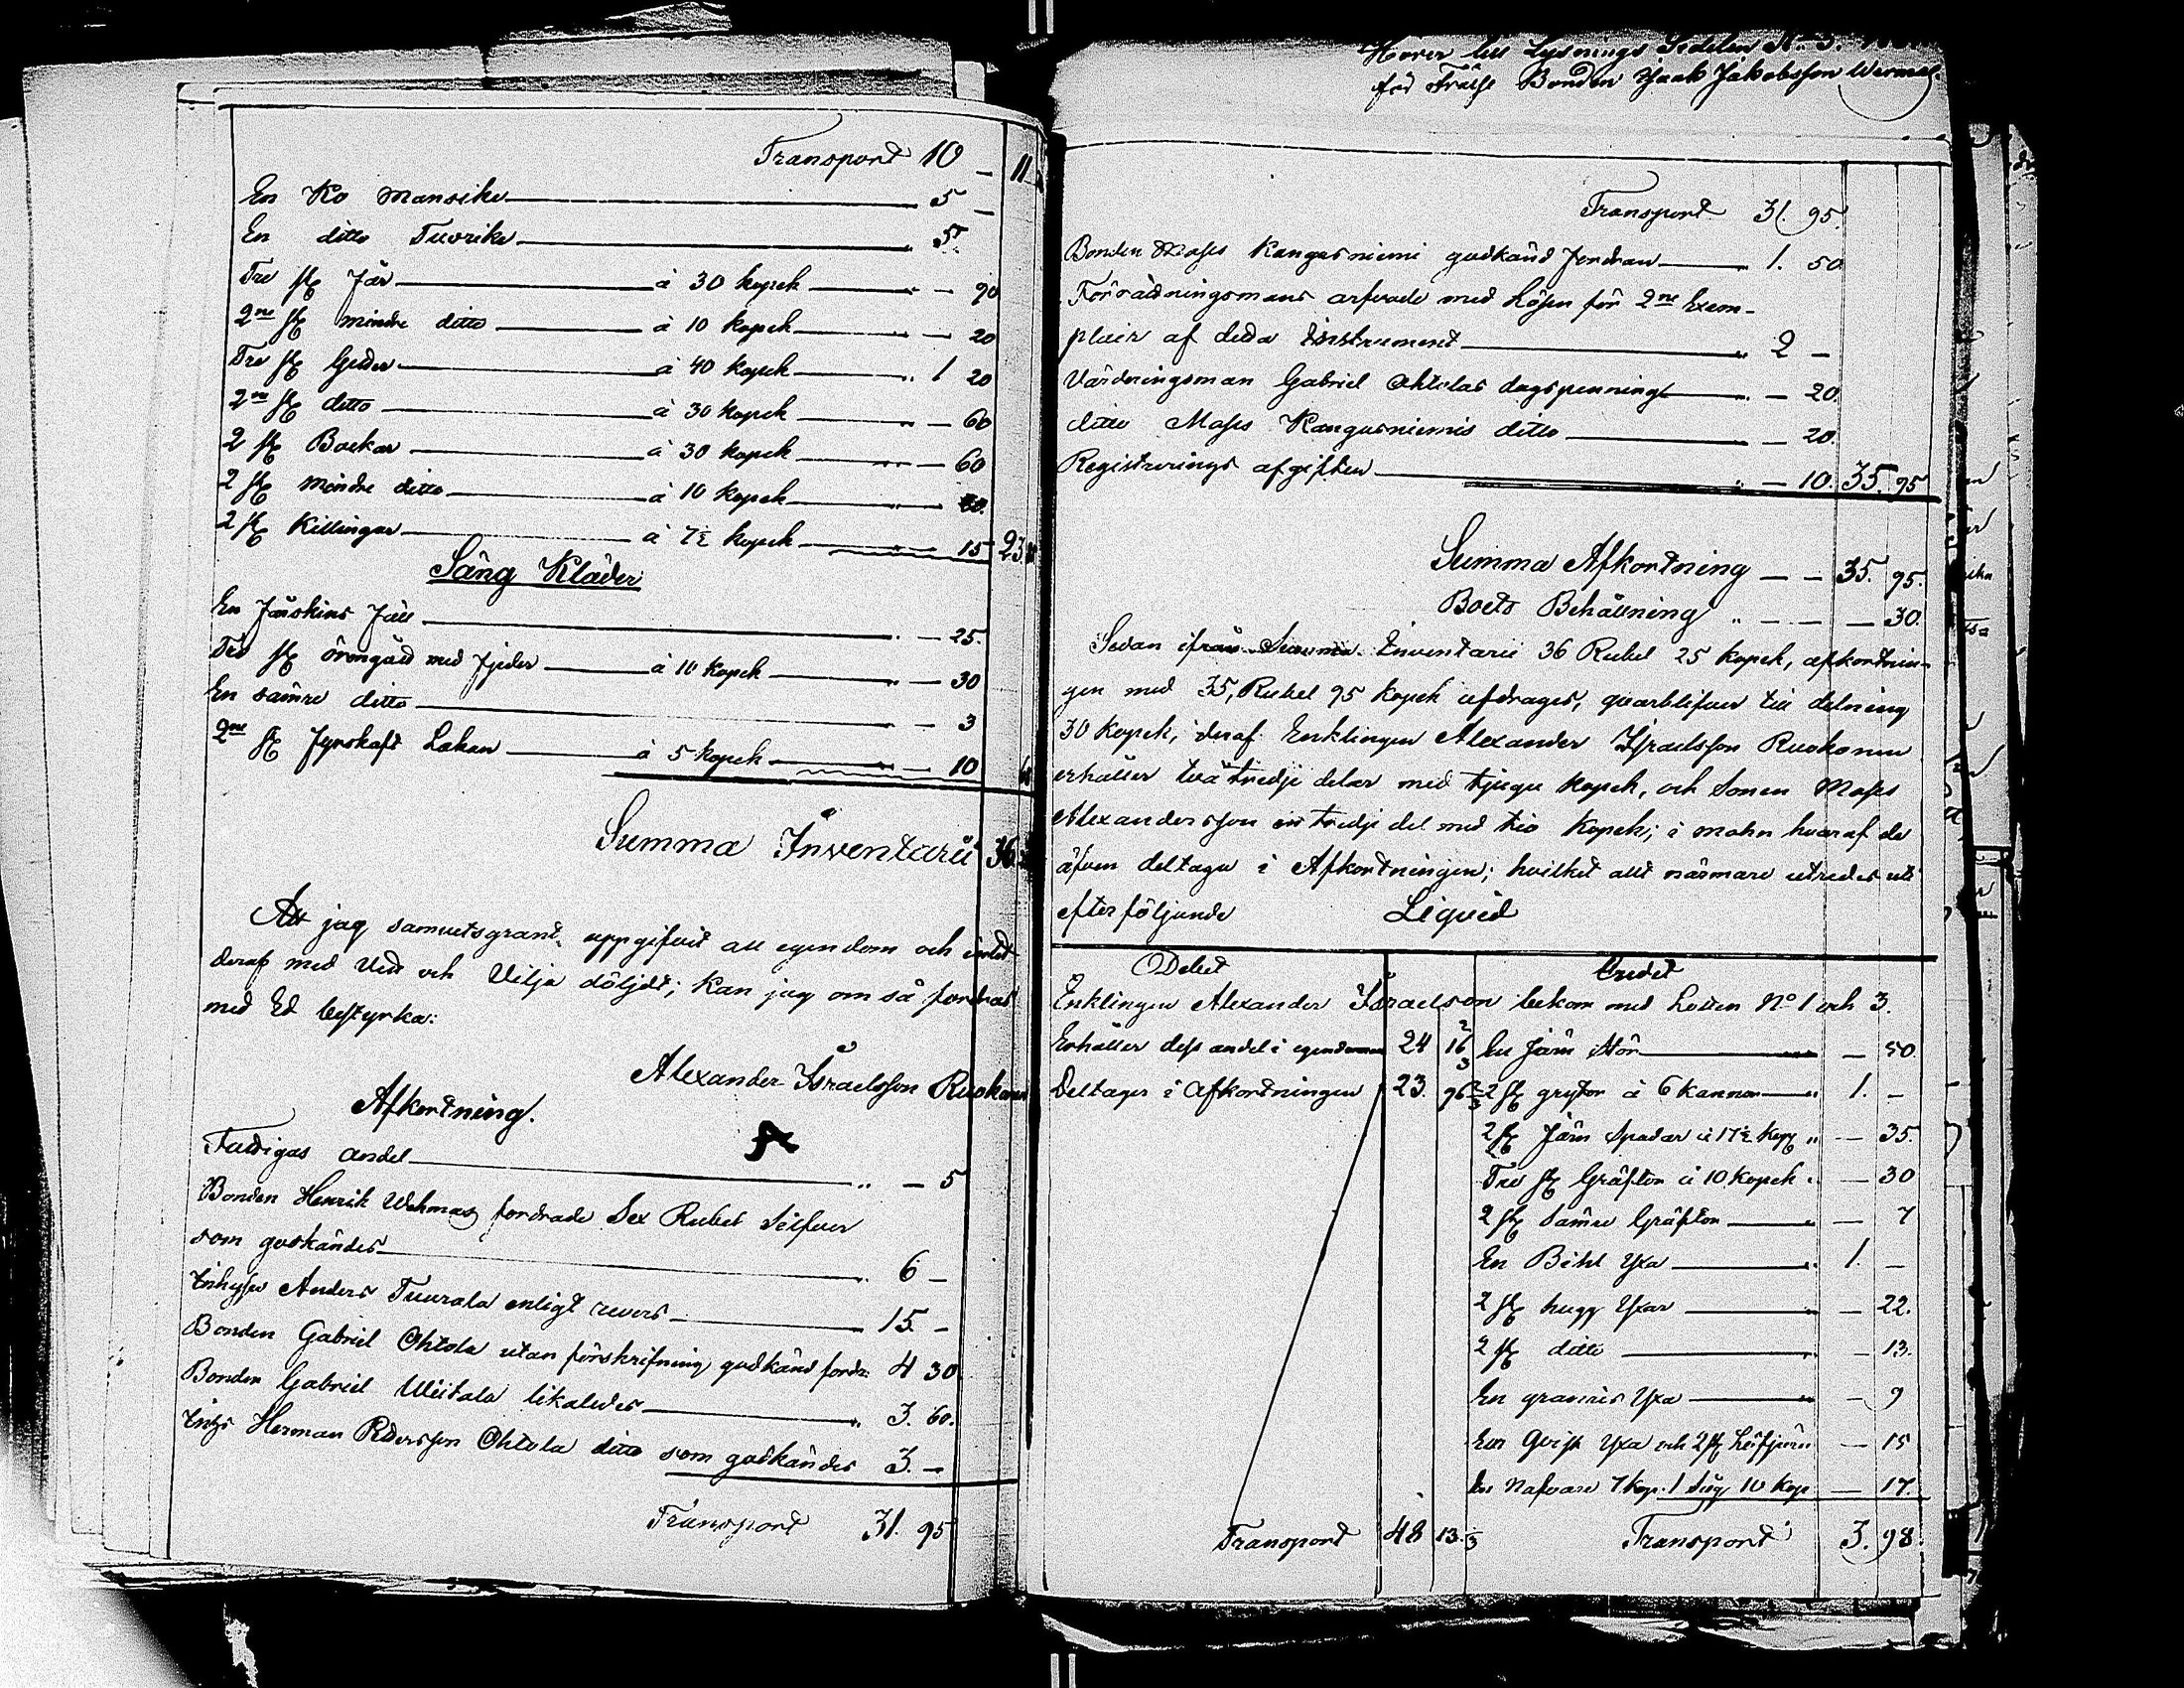 Transport 10 – 11
En Ko Mansike 5 –
En ditto Tuorike 5
Tre st Får à 30 kopek – 90
2ne st mindre ditto à 10 kopek – 20
Tre st Getter à 40 kopek 1 20
2ne st ditto à 30 kopek – 60
2 st Bockar à 30 kopek – 60
2 st mindre ditto à 10 kopek – 20.
2 st Killingar à 7½ kopek – 15 23
Säng Kläder
En Fårskins Fäll – 25.
Två st örengått med fjeder à 10 kopek – 30
En sämre ditto – 3
2ne st Fyrskaft Lakan à 5 kopek – 10
Summa Inventarii 36
Att jag samvetsgrant uppgifvit all egendom och intet
deraf med Vett och Vilja döljdt; kan jag om så fordras
med Ed bestyrka:
Alexander Israelsson Ruokonen
Afkortning.
Fattigas andel – 5
Bonden Henrik Wehmas fordrade Sex Rubel Silfver
som godkändes 6 –
Inhyses Anders Tuurala enligt revers 15. –
Bonden Gabriel Ohtola utan förskrifning godkänd fordr. 4 30
Bonden Gabriel Wiitala likaledes 3. 60.
Inhys Herman Ohtola ditto som godkändes 3. –
Transport 31. 95
Hörer till Lysnings Sedeln No 3.
för Bonden Isaak Jakobsson
Transport 31. 95.
Bonden Mats Kangasniemi godkänd fordran 1. 50
Förrättningsmans arfvode med Lösen för 2ne Exem-
plair af detta Instrument 2 –
Värderingsman Gabriel Ohtolas dagspenning – 20.
ditto Mats Kangasniemis ditto – 20.
Registrerings afgiften – 10. 35. 95
Summa Afkortning – – 35. 95.
Boets Behållning – – – 30.
Sedan ifrån Summa Inventarii 36 Rubel 25 kopek, afkortnin-
gen med 35, Rubel 95 kopek afdrages, qvarblifver till delning
30 kopek, deraf Enklingen Alexander Israelsson Ruokonen
erhåller två tredje delar med tjugu kopek, och Sonen Mats
Alexandersson en tredje del med tio Kopek; i mohn hvaraf de
äfven deltaga i Afkortningen; hvilket allt närmare utredes uti
efterföljande Liqvid
Debet Credit
Enklingen Alexander Israelson bekom med Lotten No 1 och 3.
Erhåller dess andel i egendomen 24 16 2/3 En Järn Stör – 50
Deltager i Afkortningen 23. 96 2/3 2 st grytor à 6 kannor 1. –
2 st Järn Spadar à 17½ kop – 35.
Tre st Gräftor à 10 Kopek – 30
2 st Sämre Gräftor – 7
En Bihl Yxa 1. –
2 st hugg Yxar – 22.
2 st ditto – 13.
En grannis Yxa – 9
En Qvist Yxa och 2 st – 15
En Nafvare 7 kop. 1 Såg 10 kop – 17.
Transport 48 13 1/3 Transport 3. 98.